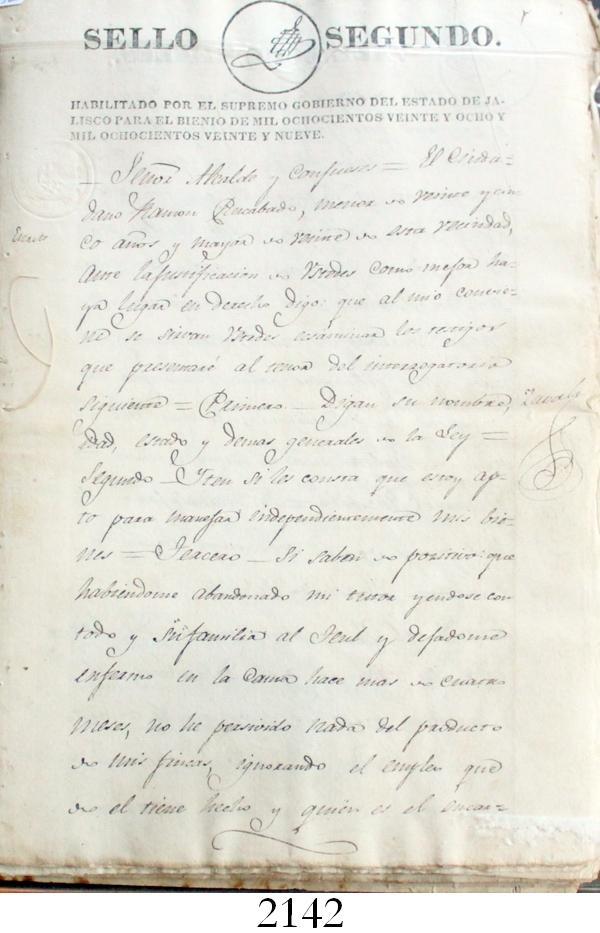 SELLO SEGUNDO.
HABILITADO POR EL SUPREMO GOBIERNO DEL ESTADO DE JA-
LISCO PARA EL BIENIO DE MIL OCHOCIENTOS VEINTE Y OCHO Y
MIL OCHOCIENTOS VEINTE Y NUEVE.
Señor Alcalde y Conjueses = El Ciuda-
dano Ramon Rucabado, menor de veinte y cin-
Escrito
co años y mayor de veinte de esta vecindad,
ante la justificacion de Vstedes como mejor ha-
ya lugar en derecho digo: que al mio convie-
ne se sirvan Vstedes ecsaminar los testigos
que presentaré al tenor del interrogatorio
siguiente = Primero _ Digan su nombre,
Zavala
edad, estado y demas generales de la Ley =
Segundo _ Yten si les consta que estoy ap-
to para manejar independientemente mis bie-
nes = Tercero _ Si saben de pozitivo que
habiendome abandonado mi tutor yendose con
todo y su familia al Teul y dejadome
enfermo en la Cama hace mas de cuatro
meses, no he persivido nada del producto
de mis fincas, ignorando el empleo que
de el tiene hecho y quien es el encar-
2142